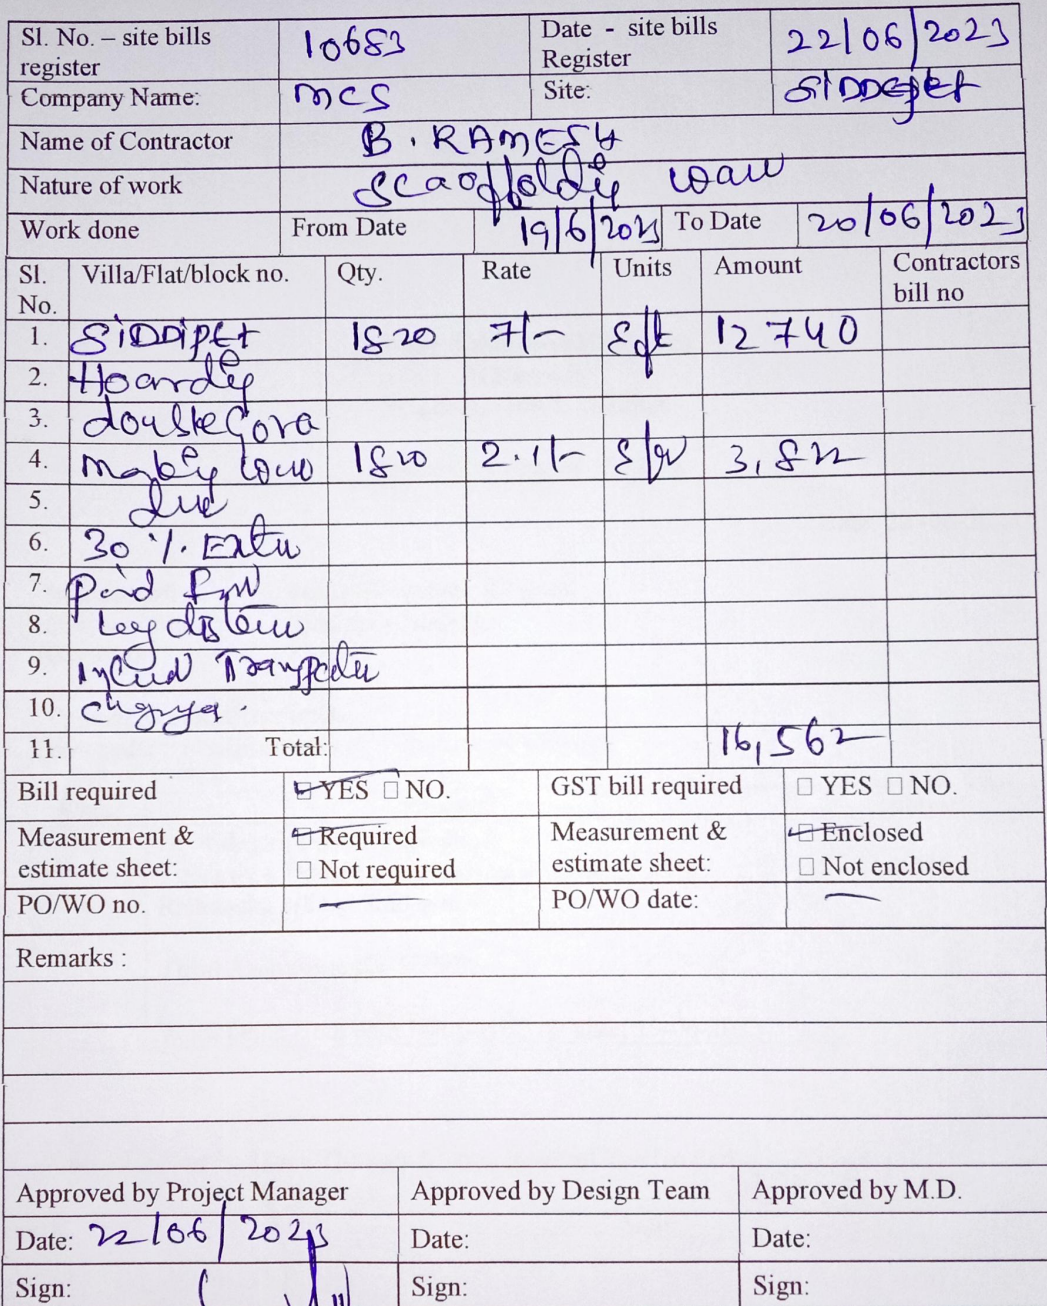 Sl. No. – site bills register 10683 Date - site bills Register 22/06/2023
Company Name: MCS Site: SIDDEPET
Name of Contractor B. RAMESH
Nature of work
Work done From Date 19/6/2023 To Date 20/06/2023
Sl. No. Villa/Flat/block no. Qty. Rate Units Amount Contractors bill no
1. SIDDIPET 1820 7/- Sft 12740
2.
3.
4. 1820 2.1/- Sft 3,822
5. due
6. 30 %. Extra
7. Paid
8.
9.
10.
11. Total: 16,562
Bill required YES NO. GST bill required YES NO.
Measurement & estimate sheet: Required Not required Measurement & estimate sheet: Enclosed Not enclosed
PO/WO no. — PO/WO date: —
Remarks :
Approved by Project Manager Approved by Design Team Approved by M.D.
Date: 22/06/2023 Date: Date:
Sign: Sign: Sign: